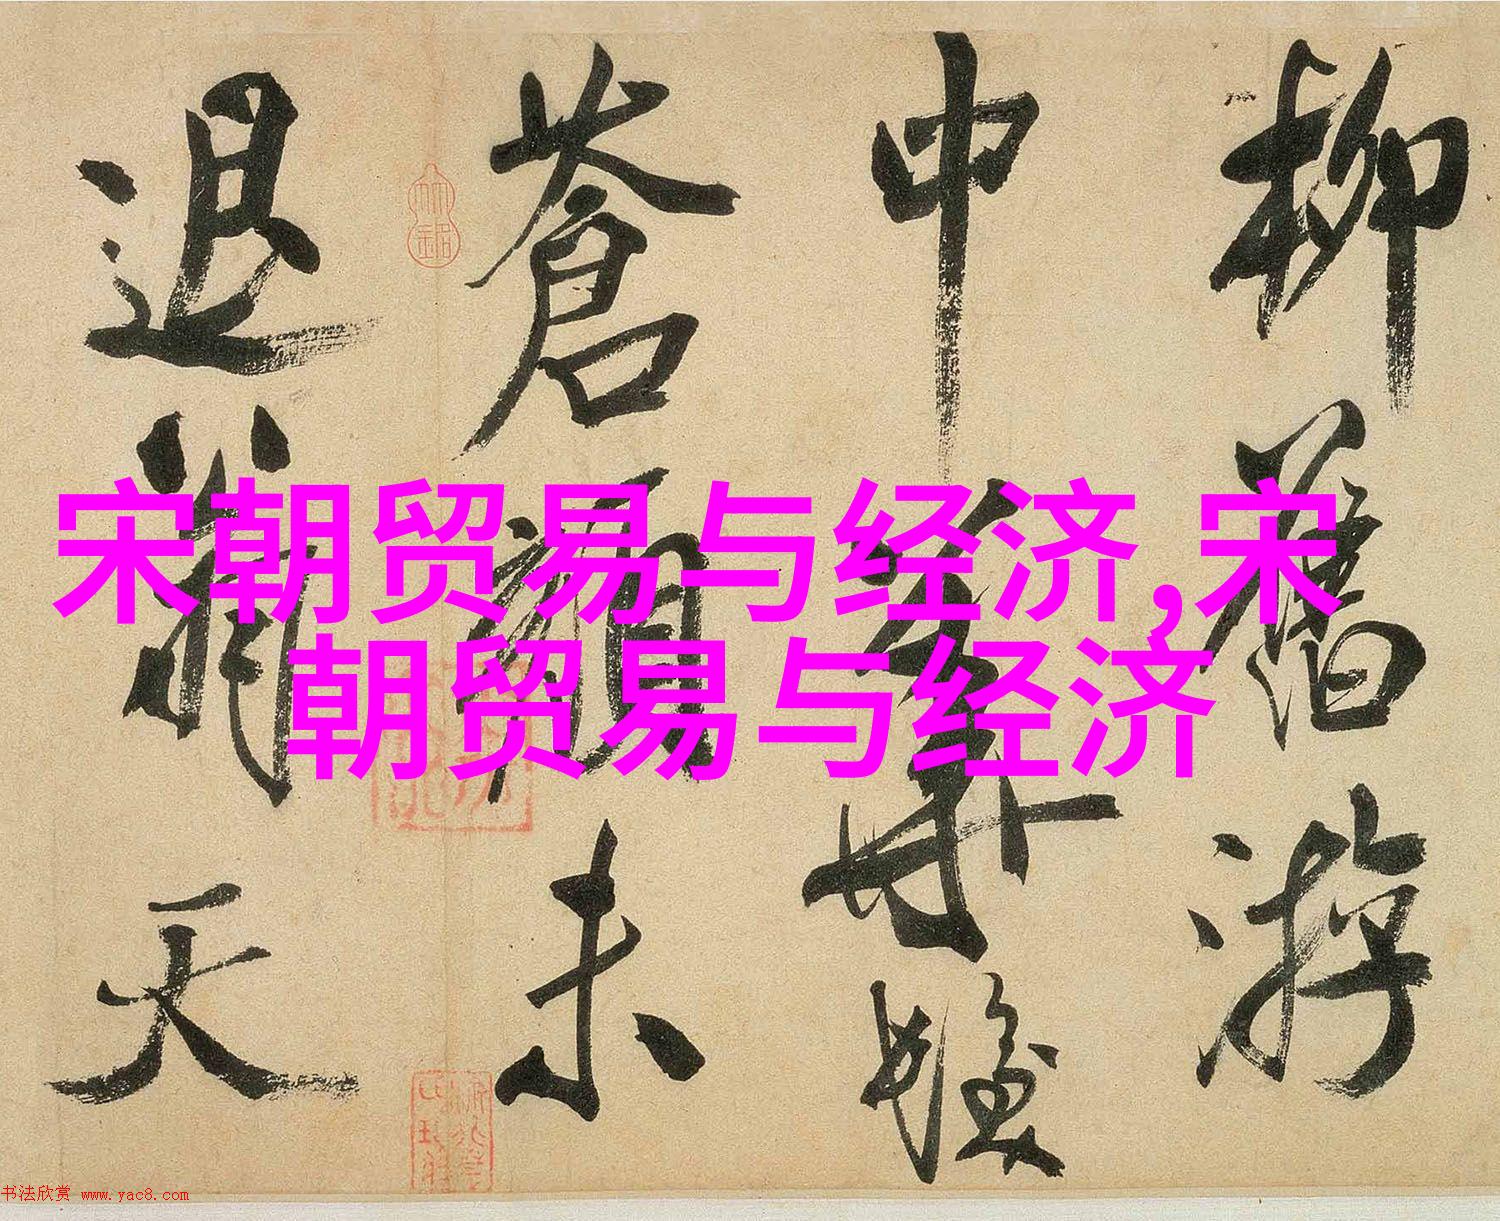 宋朝贸易与经济,宋
朝贸易与经济
柳舊游
中
蒼顏未
退天
书法欣赏 www.yac8.com